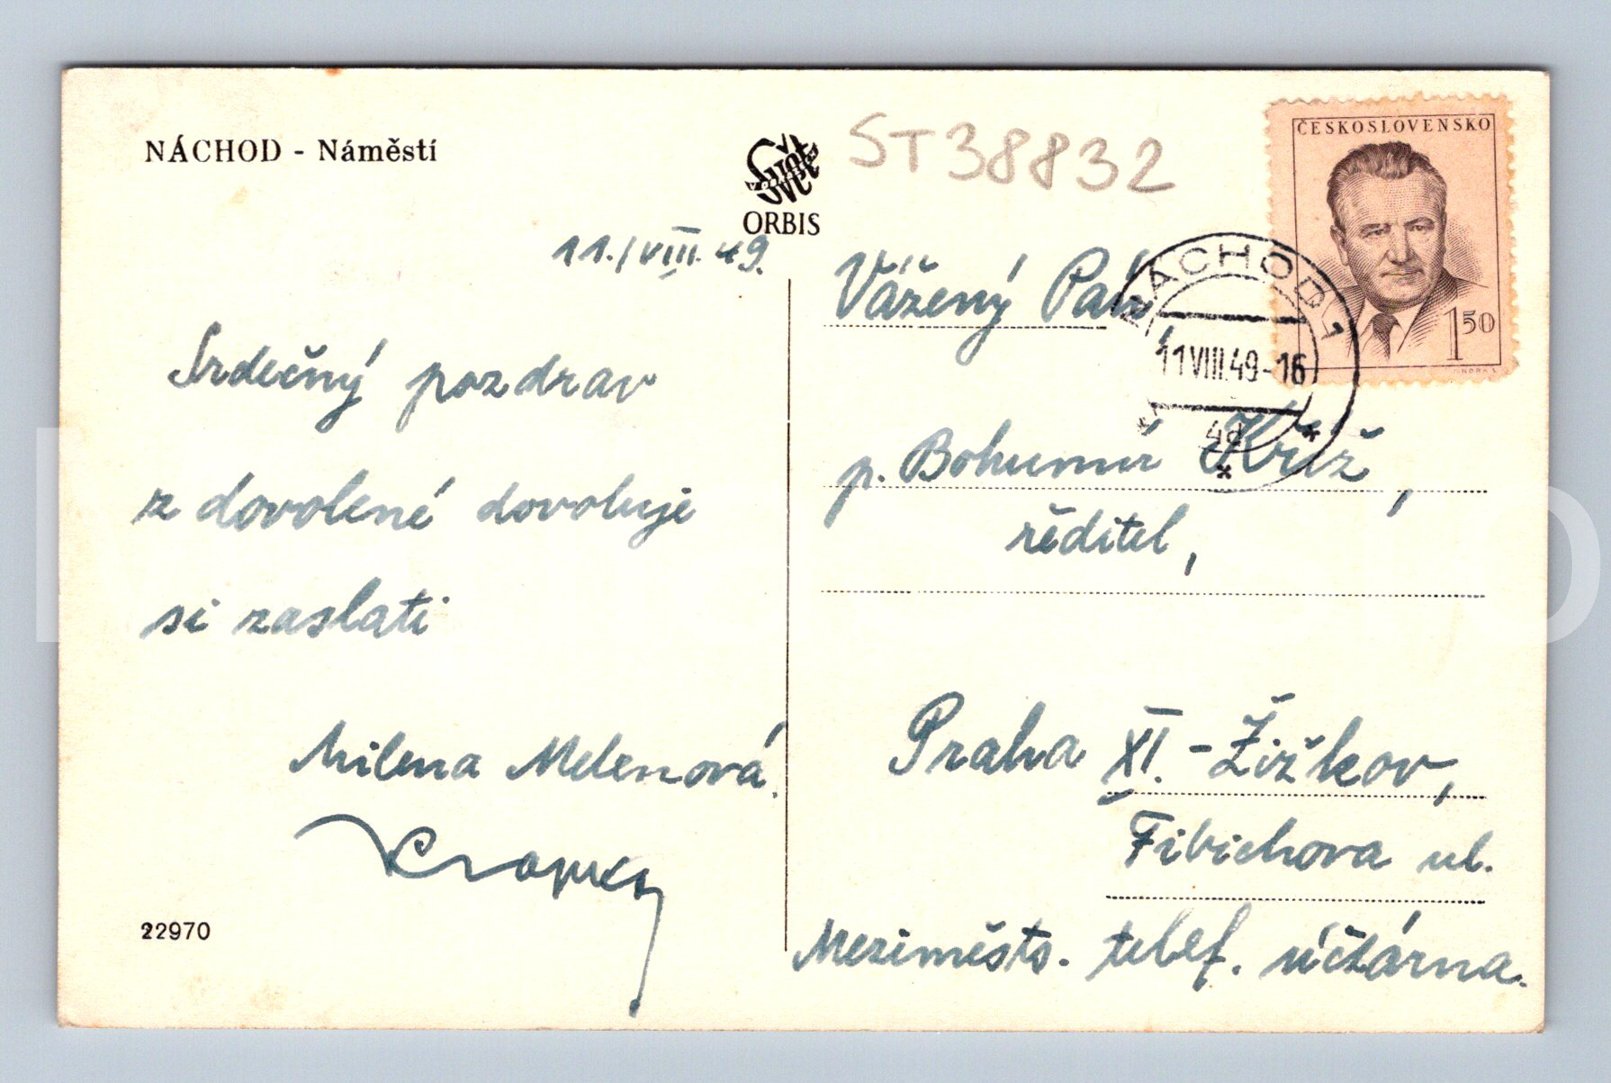 NÁCHOD - Náměstí
Svět
ORBIS
ST38832
ČESKOSLOVENSKO
150
NÁCHOD 1
11 VIII.49-16
4d
11./VIII. 49.
Srdečný pozdrav
z dovolené dovoluje
si zaslati
Milena Melenová.
22970
Vážený Pán,
p. Bohumír Kříž,
ředitel,
Praha XI.-Žižkov,
Fibichova ul.
Meziměsts. telef. účtárna.